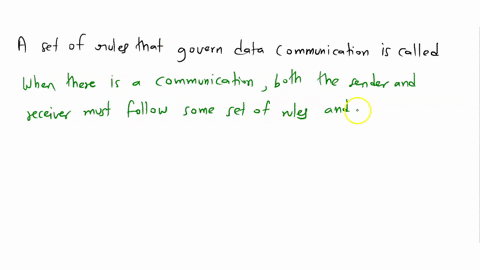 A set of rules that govern data communication is called
When there is a communication, both the sender and
receiver must follow some set of rules and